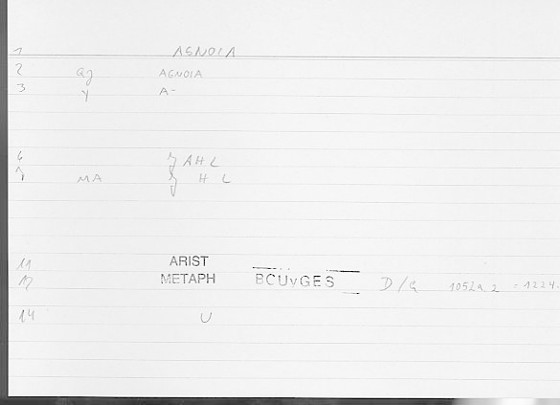 1 AGNOIA
2 ag AGNOIA
3 γ A-
6 AHL
7 MA HL
11 ARIST
12 METAPH BCUvGES D/G 1052a 2 = 1224.
14 U